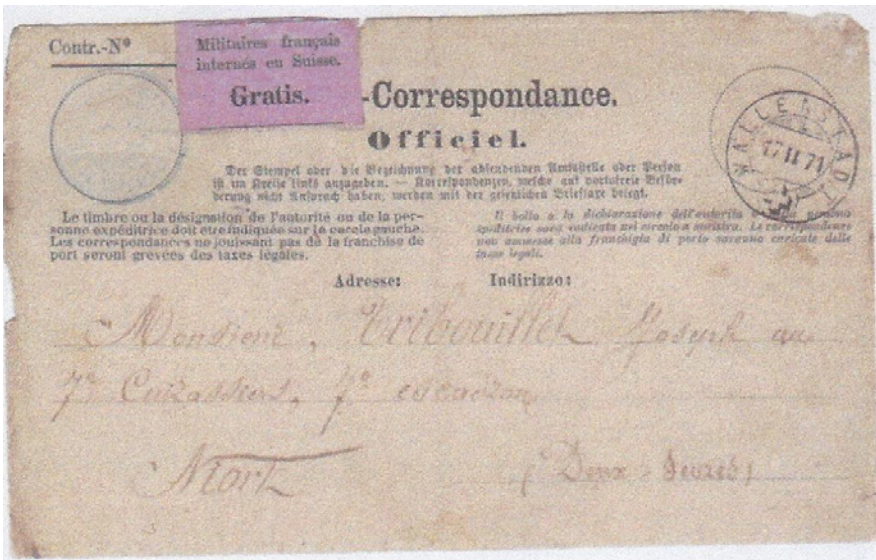 Contr.-Nº
Militaires français
internés en Suisse.
Gratis.
-Correspondance.
Officiel.
WALLENSTADT
17 II 71
Der Stempel oder die Bezeichnung der absendenden Amtsstelle oder Person
ist im Kreise links anzugeben. — Korrespondenzen, welche auf portofreie Beför-
derung nicht Anspruch haben, werden mit der gesetzlichen Brieftaxe belegt.
Le timbre ou la désignation de l'autorité ou de la per-
sonne expéditrice doit etre indiquée sur la cercle gauche.
Les correspondances ne jouissant pas de la franchise de
port seront grevées des taxes légales.
Il bollo o la dichiarazione dell'autorita
speditrice sara indicata nel circolo a sinistra. Le corrispondenze
non ammesse alla franchigia di porto saranno caricate delle
tasse legali.
Adresse:
Indirizzo:
Monsieur, Tribouillet Joseph au
7e Cuirassiers, 7e escadron
Niort
(Deux-Sevres)